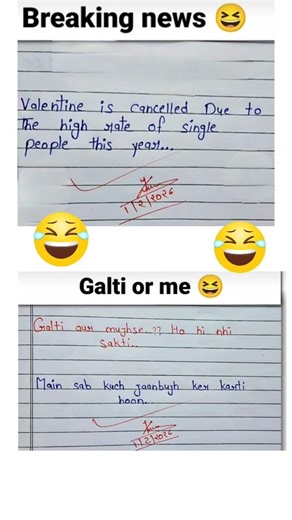 Breaking news 😆
Valentine is cancelled Dye to
The high rate of single
people this year...
1/2/2026
Galti or me 😆
Galti aur mujhse..?? Ho hi nhi
sakti..
Main sab kuch jaanbujh ker karti
hoon.
1/2/2026